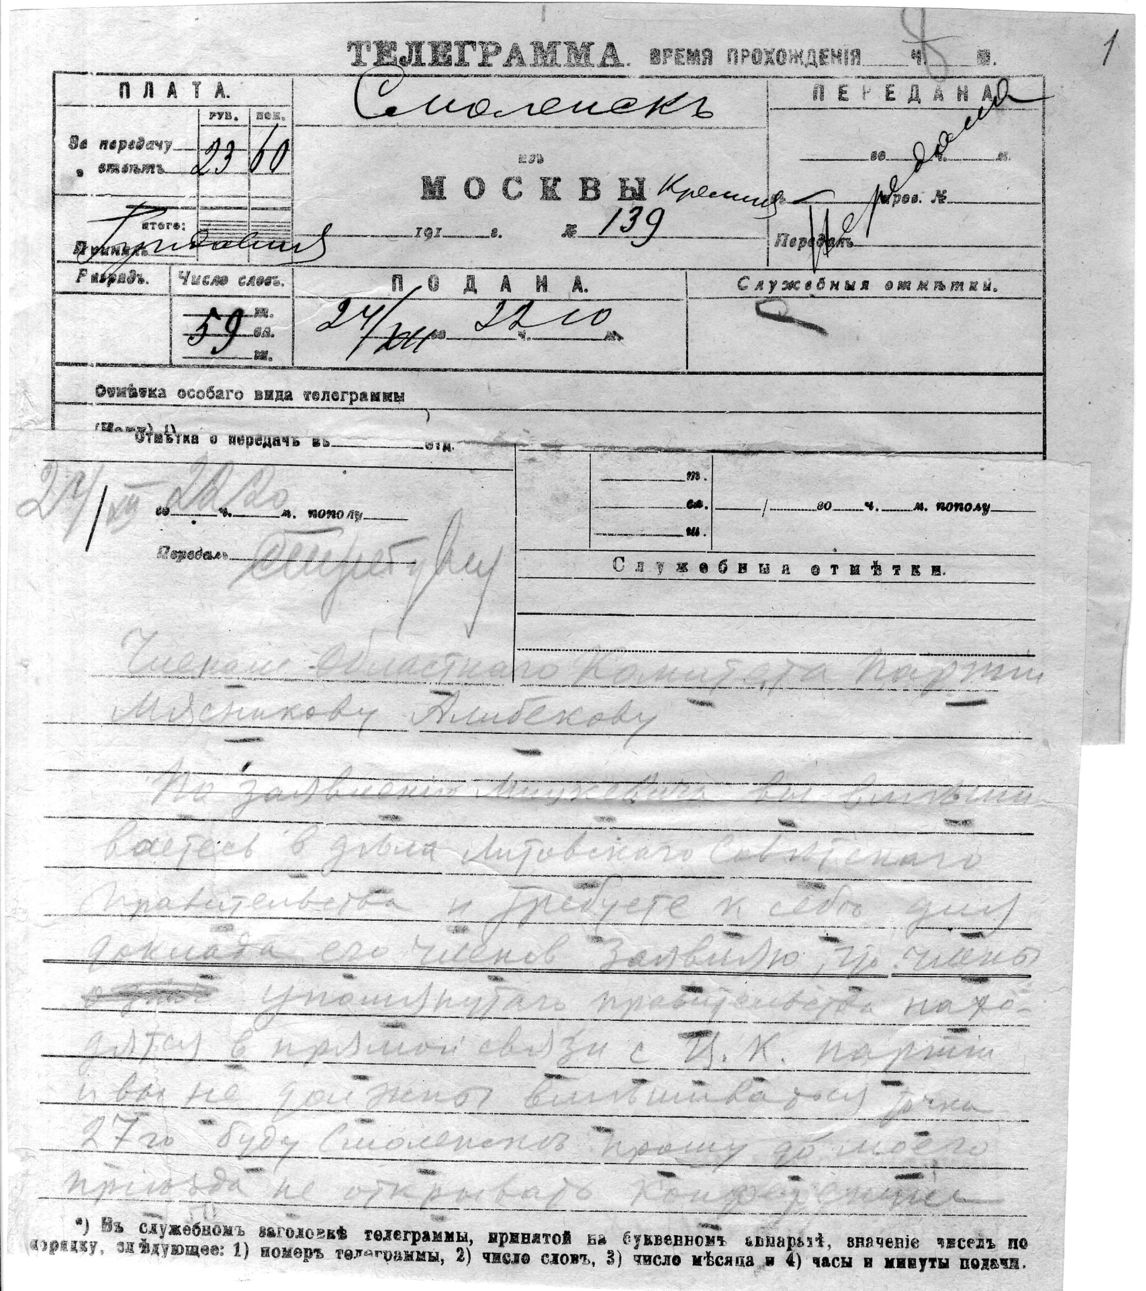 1
ТЕЛЕГРАММА. ВРЕМЯ ПРОХОЖДЕНІЯ Ч. М.
8
ПЛАТА.
РУБ. КОП.
За передачу
„ отвѣтъ
23 60
ИТОГО:
Принялъ
Смоленскъ
изъ
МОСКВЫ Кремля
191 г. № 139
ПЕРЕДАНА
во ч. м.
Передана
въ № пров. №
Передалъ
Разрядъ. Число словъ.
т.
59 сл.
ш.
ПОДАНА.
24/XII во 22 ч. 10 м.
Служебныя отмѣтки.
Отмѣтка особаго вида телеграммы
Отмѣтка о передачѣ въ отд.
24/XII во 22 ч. 20 м. пополу
Передалъ
т.
сл.
ш.
/ во ч. м. пополу
Служебныя отмѣтки.
Членамъ Областного Комитета Партіи
Мясникову Алибекову
По заявленію Мицкевича вы вмѣши
ваетесь в дѣла Литовскаго Совѣтскаго
правительства и требуете к себѣ для
доклада его членов Заявляю что члены
упомянутаго правительства нахо-
дятся в прямой связи с Ц. К. партіи
и вы не должны вмѣшиваться точка
27го буду Смоленскѣ прошу до моего
пріѣзда не открывать конференціи
*) Въ служебномъ заголовкѣ телеграммы, принятой на буквенномъ аппаратѣ, значеніе чиселъ по
порядку, слѣдующее: 1) номеръ телеграммы, 2) число словъ, 3) число мѣсяца и 4) часы и минуты подачи.